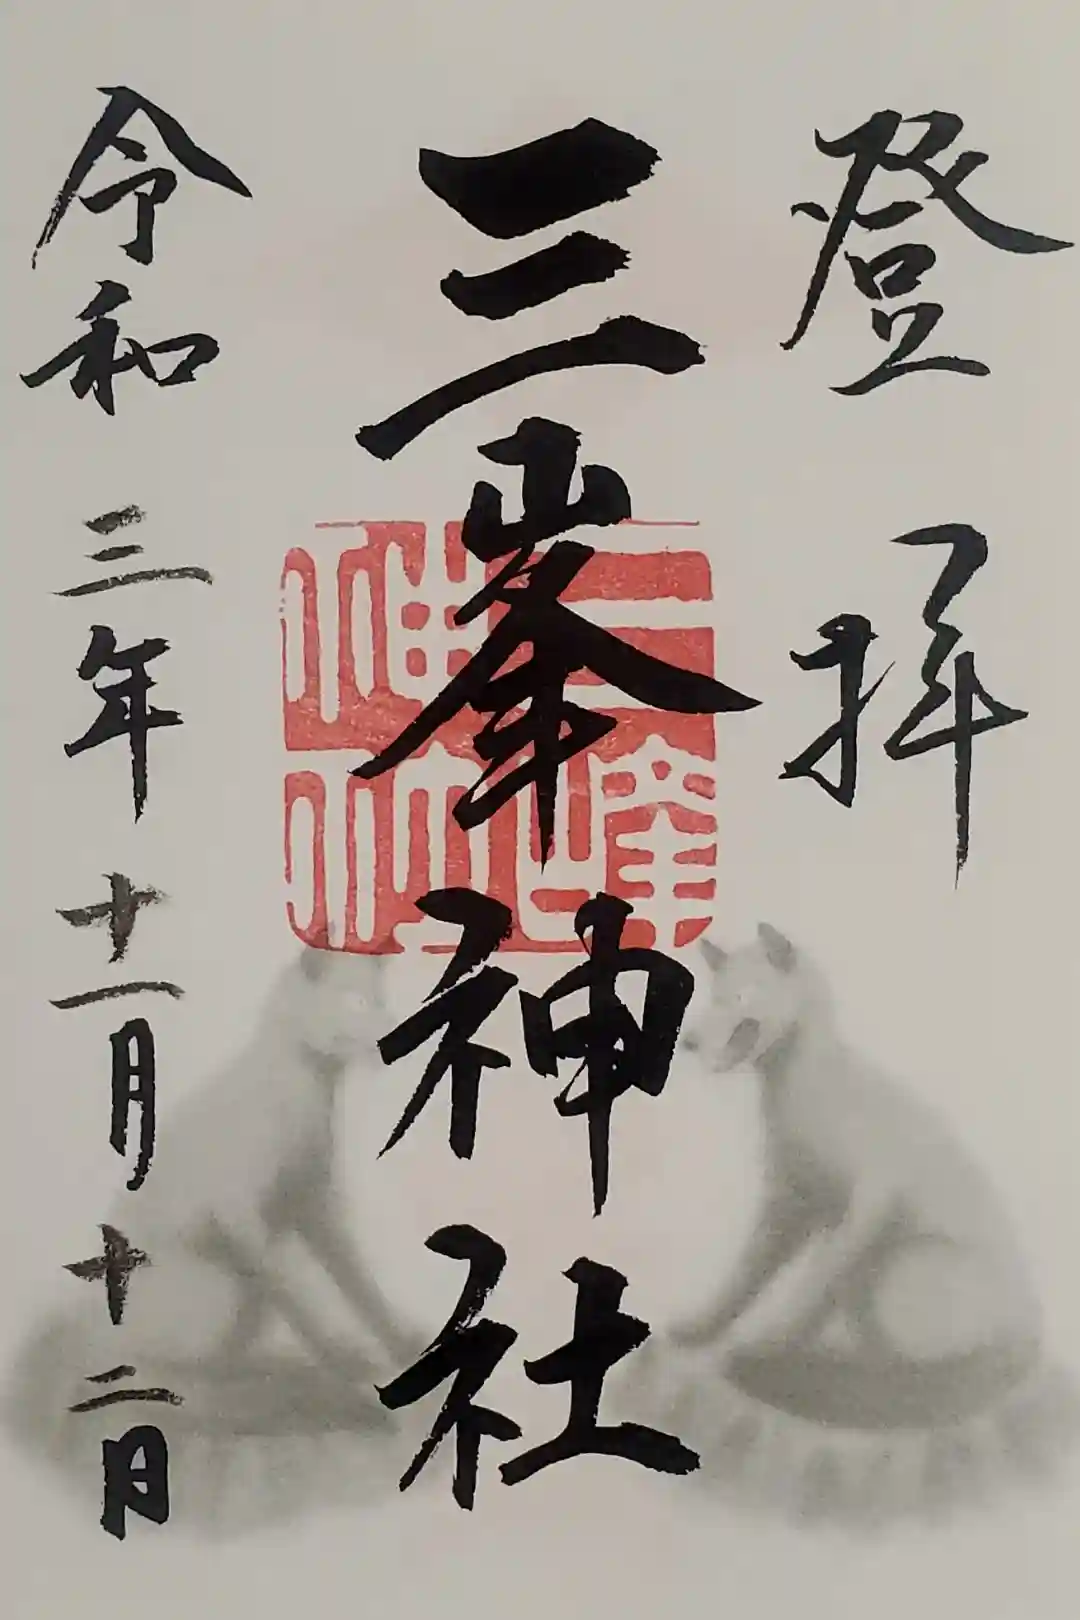 登拝
三峯神社
令和三年十一月十二日